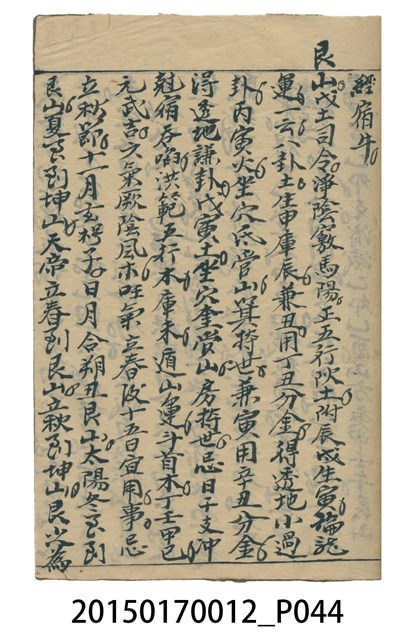 經宿牛
艮山戊土司令淨陰竅馬陽正五行陰土附辰戌生寅論龍
運一云八卦土生申庫辰兼丑用丁丑分金得透地小過
卦丙寅火坐穴氐管山箕持世兼寅用辛丑分金
得透地謙卦戊寅土坐穴奎管山房持世忌日干支冲
尅宿吞啗洪範五行木庫未遁山運斗首木丁壬甲巳
元武吉六氣厥陰風木旺氣立春後十五日宜用事忌
立秋節十一月玄枵子日月合朔丑艮山太陽冬至到
艮山夏至到坤山天帝立春到艮山立秋到坤山艮少為
20150170012_P044